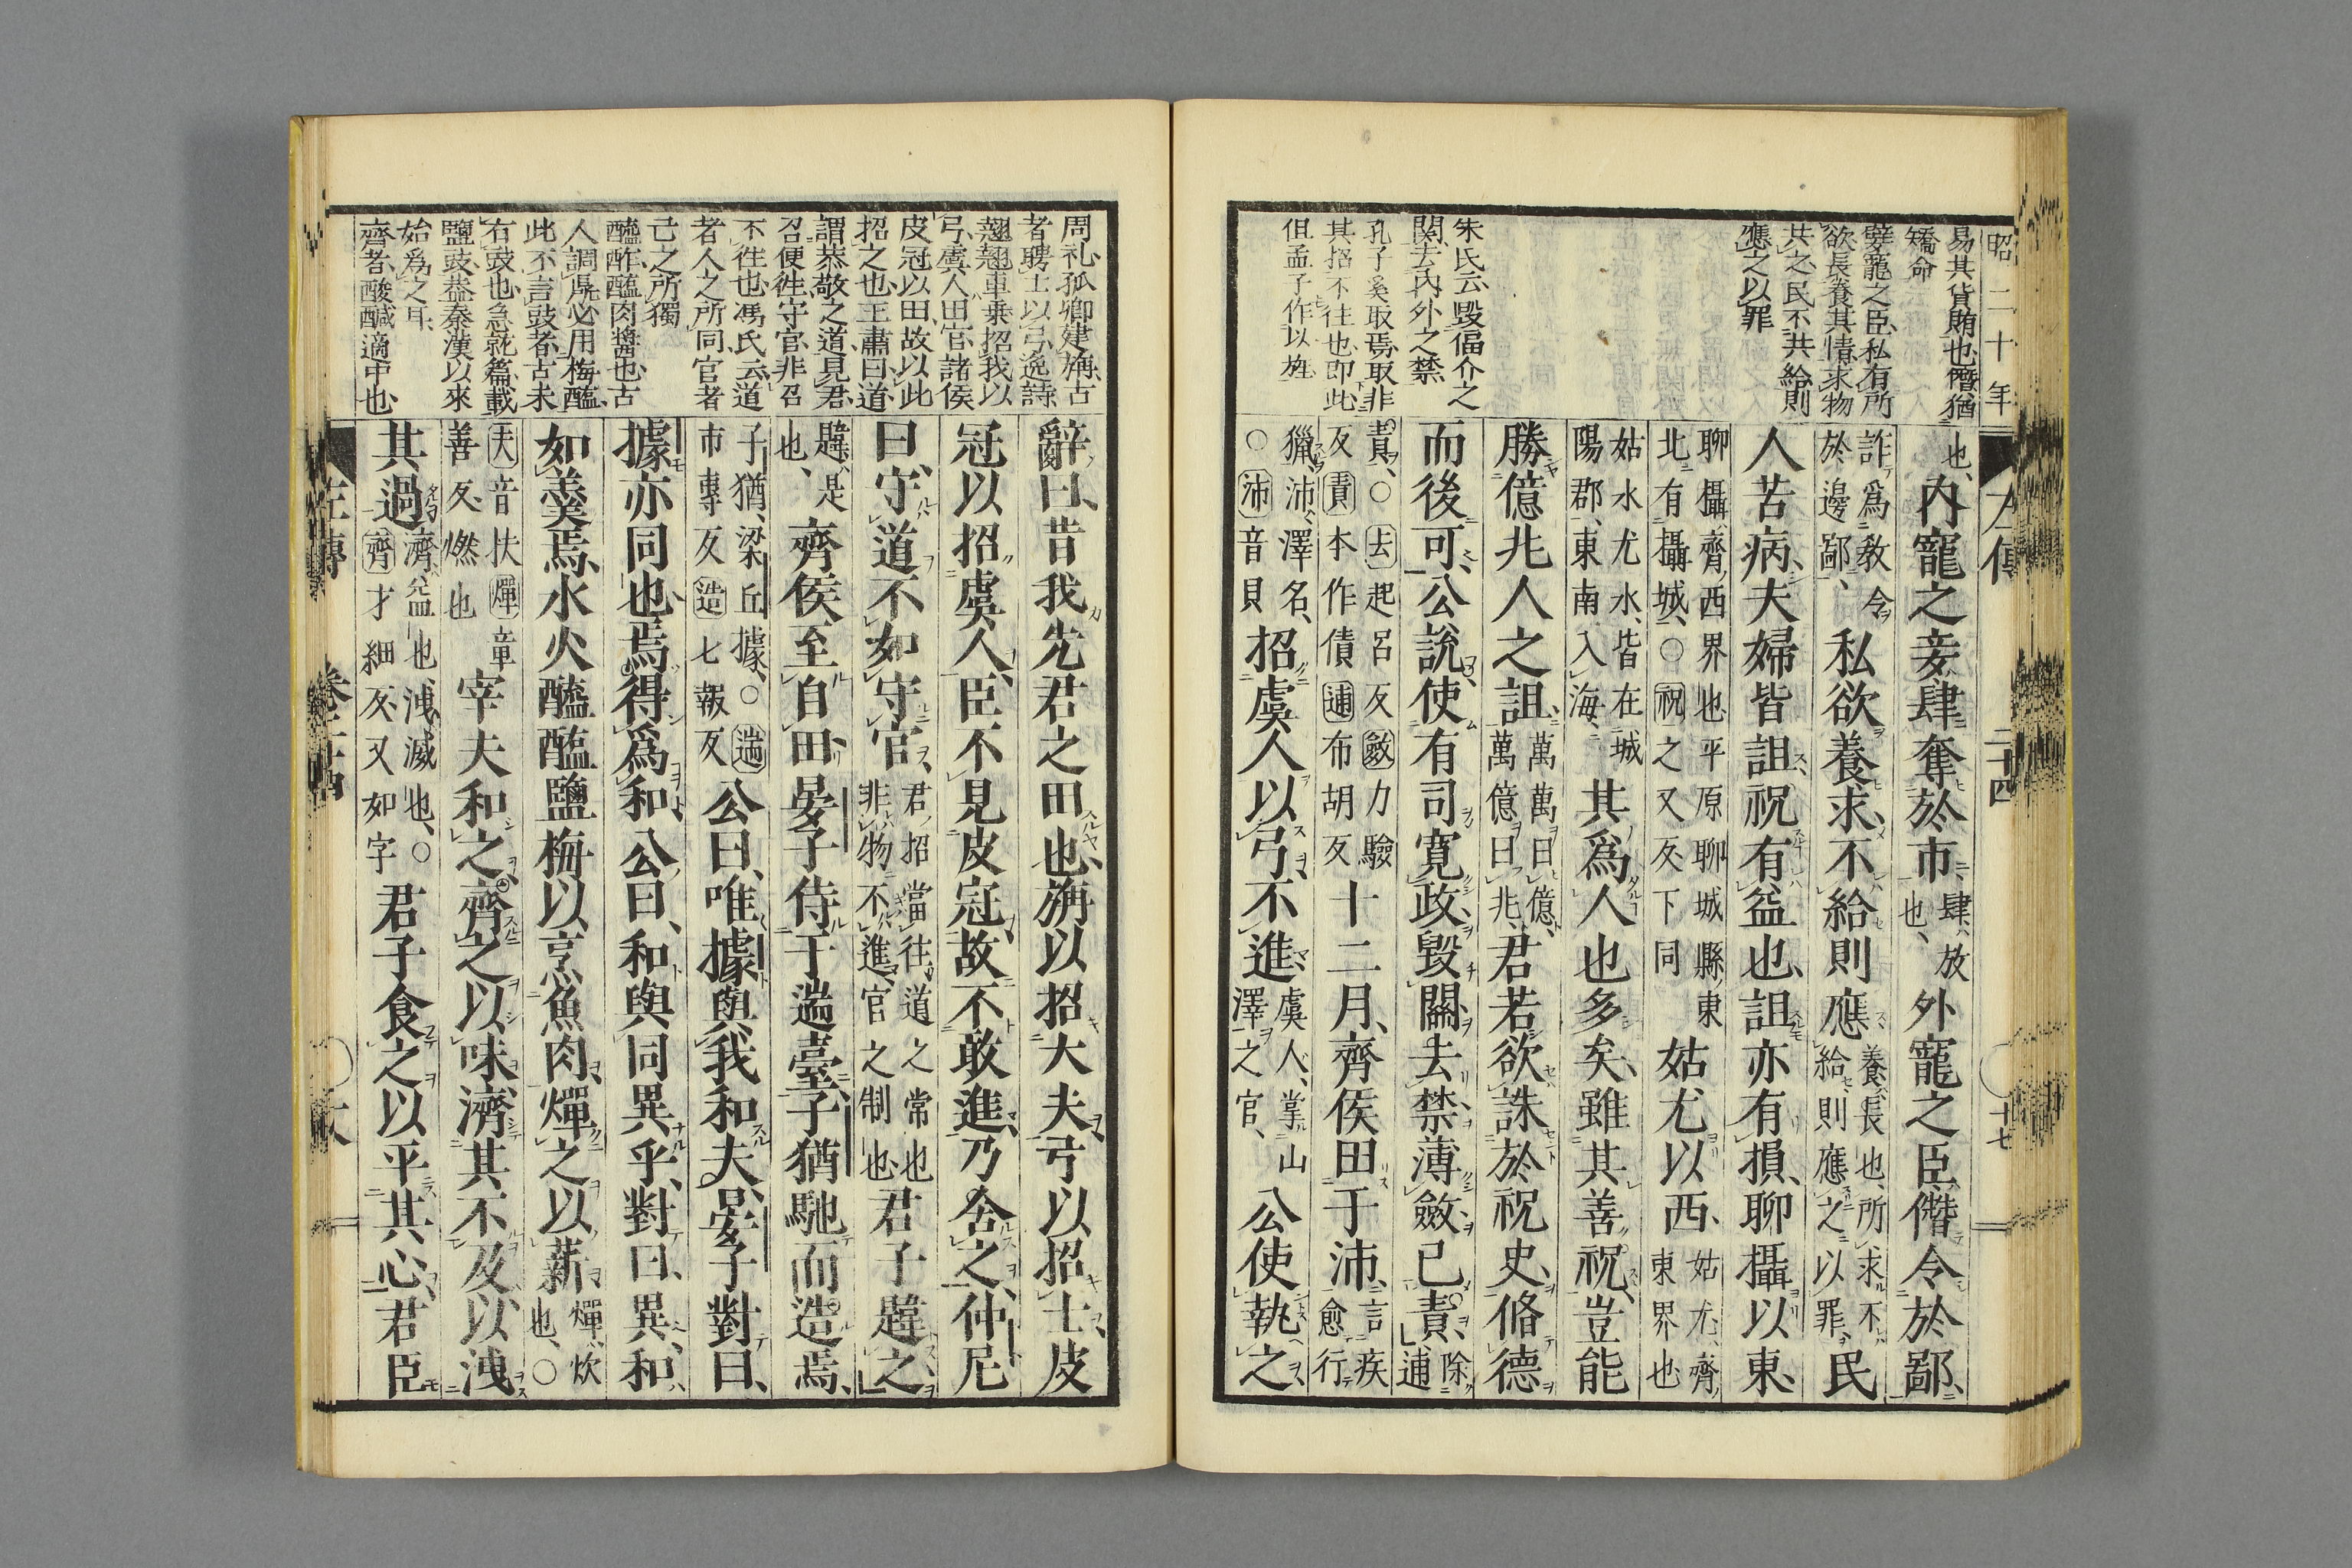 昭二十年
左傳
二十四
十七
易其貨賄也僭猶
矯命
嬖寵之臣私有所
欲長養其情求物
共之民不共給則
應之以罪
朱氏云毀偪介之
関去內外之禁
孔子奚取焉取非
其招不往也即此
但孟子作以旌
也內寵之妾肆奪於市肆放也外寵之臣僭令於鄙
詐爲教令於邊鄙私欲養求不給則應養長也所求不給則應之以罪民
人苦病夫婦皆詛祝有益也詛亦有損聊攝以東
聊攝齊西界也平原聊城縣東北有攝城○祝之又反下同姑尤以西姑尤齊東界也
姑水尤水皆在城陽郡東南入海其爲人也多矣雖其善祝豈能
勝億兆人之詛萬萬曰億萬億曰兆君若欲誅於祝史脩德
而後可公說使有司寬政毀關去禁薄斂已責除逋
責○去起呂反斂力驗反責本作債逋布胡反十二月齊侯田于沛言疾愈行
獵沛澤名○沛音貝招虞人以弓不進虞人掌山澤之官公使執之
周礼孤卿建旃古
者聘士以弓逸詩
翹翹車乗招我以
弓虞人田官諸侯
皮冠以田故以此
招之也王肅曰道
謂恭敬之道見君
召便徃守官非召
不徃也馮氏云道
者人之所同官者
己之所獨
醯酢醢肉醬也古
人調鼎必用梅醢
此不言豉者古未
有豉也急就篇載
鹽豉葢秦漢以來
始爲之耳
齊者酸鹹適中也
辭曰昔我先君之田也旃以招大夫弓以招士皮
冠以招虞人臣不見皮冠故不敢進乃舍之仲尼
曰守道不如守官君招當往道之常也非物不進官之制也君子韙之
韙是也齊侯至自田晏子侍于遄臺子猶馳而造焉
子猶梁丘據○遄市專反造七報反公曰唯據與我和夫晏子對曰
據亦同也焉得爲和公曰和與同異乎對曰異和
如羹焉水火醯醢鹽梅以烹魚肉燀之以薪燀炊也○
夫音扶燀章善反燃也宰夫和之齊之以味濟其不及以洩
其過濟益也洩減也○齊才細反又如字君子食之以平其心君臣
左傳
卷二十四